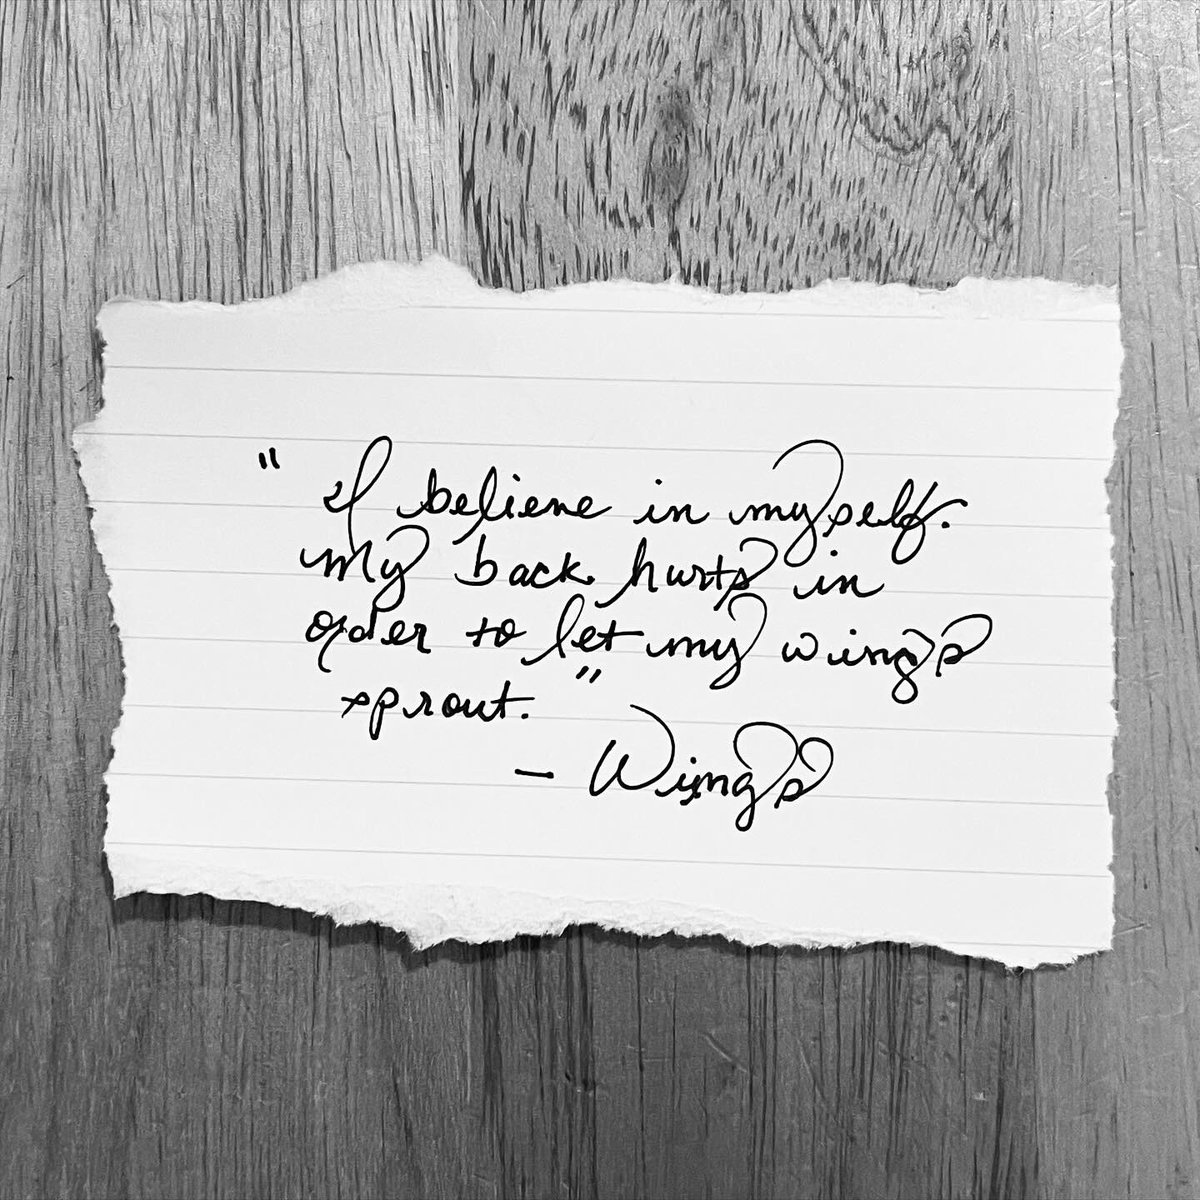 " I believe in myself.
My back hurts in
order to let my wings
sprout. "
- Wings